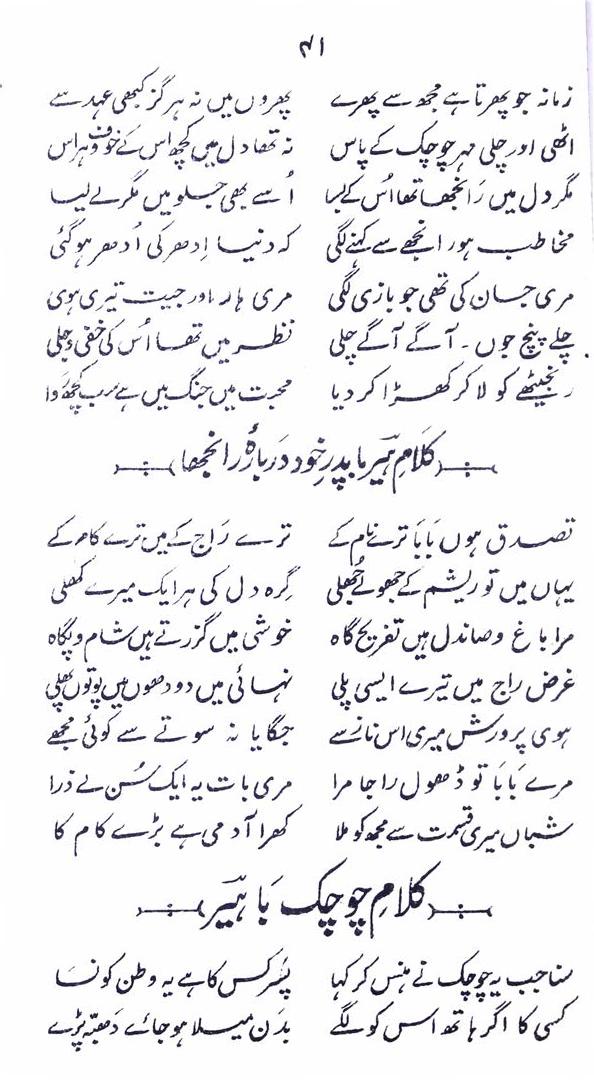 ۴۱
زمانہ جو پھرتا ہے مجھ سے پھرے پھروں میں نہ ہرگز کبھی عہد سے
اٹھی اور چلی مہر چوچک کے پاس نہ تھا دل میں کچھ اس کے خوف و ہراس
مگر دل میں رَانجھا تھا اُس کے بسا اُسے بھی جلو میں مگر لے لیا
مخاطب ہو رانجھے سے کہنے لگی کہ دنیا اِدھر کی اُدھر ہو گئی
مری جان کی تھی جو بازی لگی مری ہار اور جیت تیری ہوی
چلے پنچ جوں ۔ آگے آگے چلی نظر میں تھا اُس کی خفی و جلی
رنجیٹھے کو لا کر کھڑا کر دیا محبت میں جنگ میں ہے سب کچھ رَوا
کلامِ ہیر با پدرِ خود دَربارۂ رانجھا
تصدق ہوں بَابَا ترے نام کے ترے رَاج کے میں ترے کام کے
یہاں میں تو ریشم کے جھولے جُھلی گِرہ دل کی ہر ایک میرے کھلی
مرا باغ و صاندل ہیں تفریح گاہ خوشی میں گزرتے ہیں شام و پگاہ
غرض راج میں تیرے ایسی پلی نہائی میں دودھوں میں پوتوں پھلی
ہوی پرورش میری اس ناز سے جگایا نہ سوتے سے کوئی مجھے
مرے بَابَا تو ڈھول راجا مرا مری بات یہ ایک سُن لے ذرا
شباں میری قسمت سے مجھ کو ملا کھرا آدمی ہے بڑے کام کا
کلامِ چوچک بَا ہیر
مناحب یہ چوچک نے ہنس کر کہا پِسَر کس کا ہے یہ وطن کونسا
کسی کا اگر ہاتھ اس کو لگے بدَن میلا ہو جائے دَھبّہ پڑے